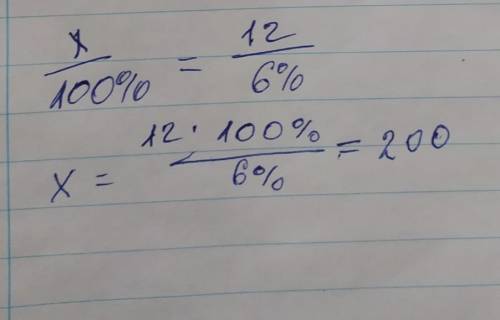 x/100% = 12/6%
x = 12 · 100%/6% = 200